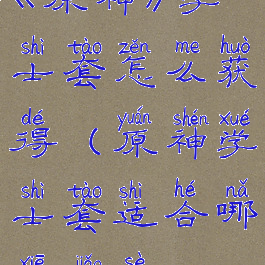 《原神》学
shì tào zěn me huò
士套怎么获
dé yuán shén xué
得（原神学
shì tào shì hé nǎ
士套适合哪
xiē jiǎo sè